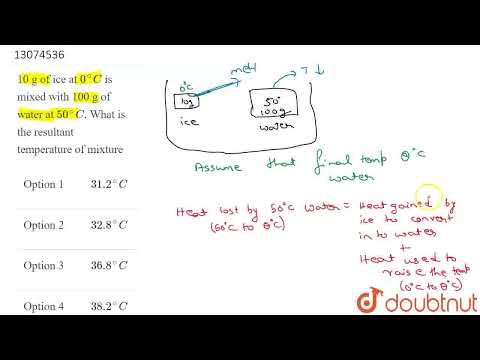 13074536
10 g of ice at 0°C is
mixed with 100 g of
water at 50°C. What is
the resultant
temperature of mixture
Option 1 31.2°C
Option 2 32.8°C
Option 3 36.8°C
Option 4 38.2°C
0°C
10g
ice
melt
50°
100g
water
T ↓
Assume that final temp θ°C
water
Heat lost by 50°C water =
(50°C to θ°C)
Heat gained by
ice to convert
in to water
+
Heat used to
raise the temp
(0°C to θ°C)
doubtnut